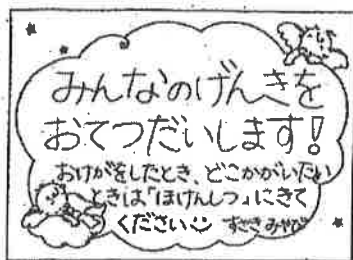 みんなのげんきを
おてつだいします!
おけがをしたとき、どこかがいたい
ときは「ほけんしつ」にきて
ください
すざきみやび